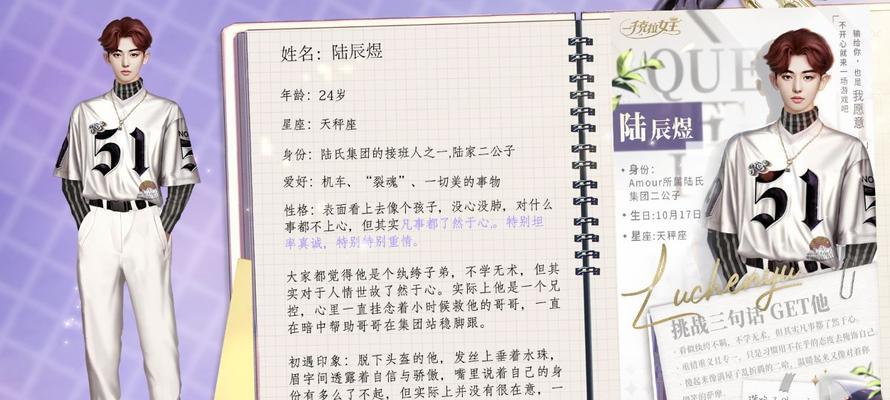 姓名：陆辰煜
年龄：24岁
星座：天秤座
身份：陆氏集团的接班人之一,陆家二公子
爱好：机车、“裂魂”、一切美的事物
性格：表面看上去像个孩子，没心没肺，对什么
事都不上心，但其实凡事都了然于心。特别坦
率真诚，特别特别重情。
大家都觉得他是个纨绔子弟，不学无术，但其
实对于人情世故了然于心。实际上他是一个兄
控，心里一直挂念着小时候救他的哥哥，一直
在暗中帮助哥哥在集团站稳脚跟。
初遇印象：脱下头盔的他，发丝上垂着水珠，
眉宇间透露着自信与骄傲，嘴里说着自己的身
份有多么了不起，但实际上并没有很在意，一
51
51
NO
千克拉女王
QUE
陆辰煜
身份：
Amour所属陆氏
集团二公子
生日:10月17日
星座:天秤座
输给你，也是我愿意
不开心就来一场游戏吧
Luchenyu
挑战三句话 GET他
看似纨绔不羁，不学无术，但其实凡事都了然于心。